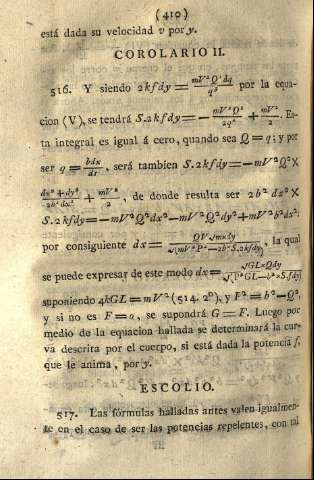 (410)
está dada su velocidad v por y.
COROLARIO II.
516. Y siendo 2kfdy = mV²Q²dq / q³ por la equa-
cion (V), se tendrá S.2kfdy = − mV²Q² / 2q² + mV² / 2. Es-
ta integral es igual á cero, quando sea Q = q; y por
ser q = bdx / ds, será tambien S.2kfdy = − mV²Q² ×
dx² + dy² / 2b²dx² + mV² / 2, de donde resulta ser 2b²dx² ×
S.2kfdy = − mV²Q²dx² − mV²Q²dy² + mV²b²dx²:
por consiguiente dx = QV√m×dy / √(mV²P² − 2b²S.2kfdy), la qual
se puede expresar de este modo dx = √GL×Qdy / √(P²GL − b²×S.fdy)
suponiendo 4kGL = mV² (514. 2º), y P² = b² − Q²,
y si no es F = 0, se supondrá G = F. Luego por
medio de la equacion hallada se determinará la cur-
va descrita por el cuerpo, si está dada la potencia f,
que le anima, por y.
ESCOLIO.
517. Las fórmulas halladas antes valen igualmen-
te en el caso de ser las potencias repelentes, con tal